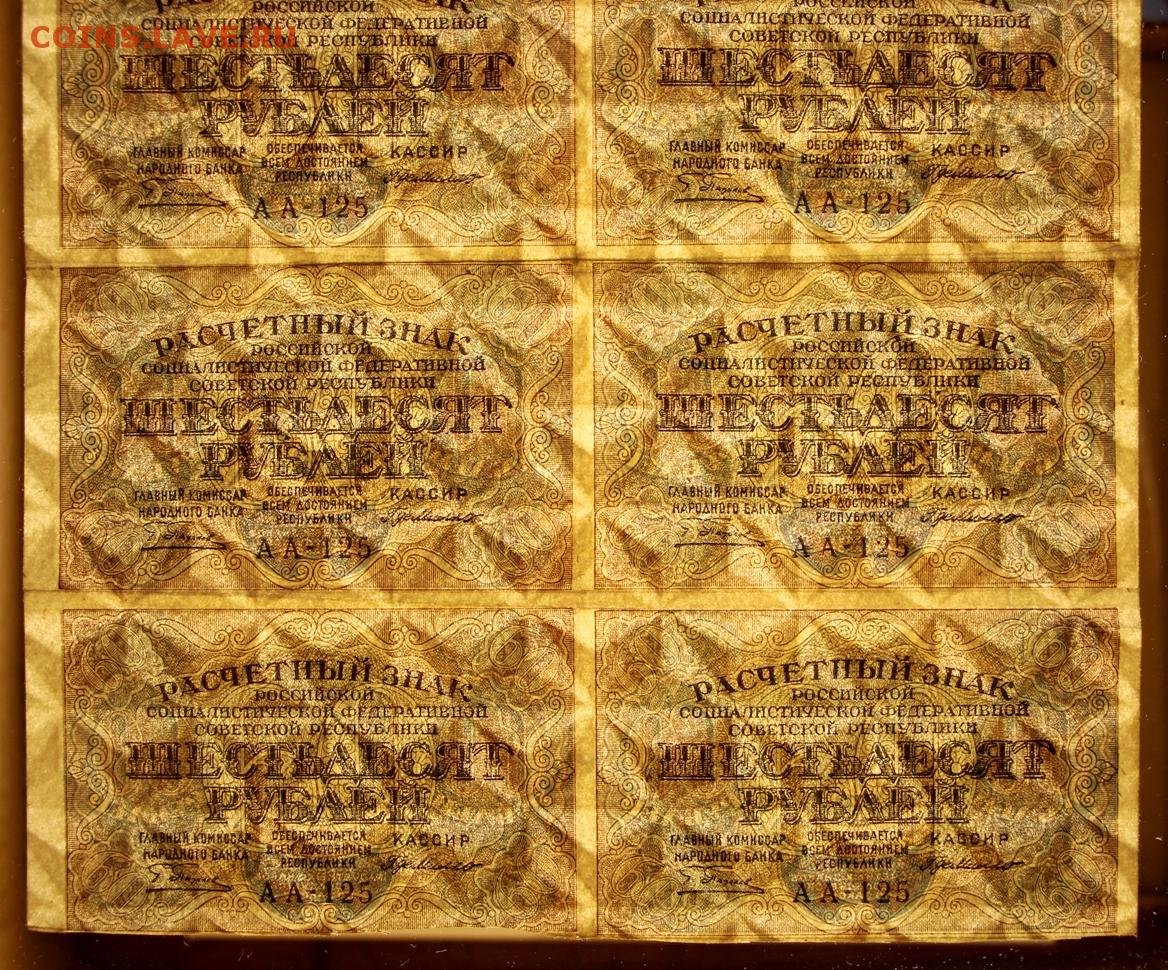 COINS.LAVE.RU
РАСЧЕТНЫЙ ЗНАК РАСЧЕТНЫЙ ЗНАК
РОССИЙСКОЙ РОССИЙСКОЙ
СОЦИАЛИСТИЧЕСКОЙ ФЕДЕРАТИВНОЙ СОЦИАЛИСТИЧЕСКОЙ ФЕДЕРАТИВНОЙ
СОВЕТСКОЙ РЕСПУБЛИКИ СОВЕТСКОЙ РЕСПУБЛИКИ
ШЕСТЬДЕСЯТ ШЕСТЬДЕСЯТ
РУБЛЕЙ РУБЛЕЙ
ГЛАВНЫЙ КОМИССАР ОБЕСПЕЧИВАЕТСЯ КАССИР ГЛАВНЫЙ КОМИССАР ОБЕСПЕЧИВАЕТСЯ КАССИР
НАРОДНОГО БАНКА ВСЕМ ДОСТОЯНИЕМ НАРОДНОГО БАНКА ВСЕМ ДОСТОЯНИЕМ
РЕСПУБЛИКИ РЕСПУБЛИКИ
АА-125 АА-125
РАСЧЕТНЫЙ ЗНАК РАСЧЕТНЫЙ ЗНАК
РОССИЙСКОЙ РОССИЙСКОЙ
СОЦИАЛИСТИЧЕСКОЙ ФЕДЕРАТИВНОЙ СОЦИАЛИСТИЧЕСКОЙ ФЕДЕРАТИВНОЙ
СОВЕТСКОЙ РЕСПУБЛИКИ СОВЕТСКОЙ РЕСПУБЛИКИ
ШЕСТЬДЕСЯТ ШЕСТЬДЕСЯТ
РУБЛЕЙ РУБЛЕЙ
ГЛАВНЫЙ КОМИССАР ОБЕСПЕЧИВАЕТСЯ КАССИР ГЛАВНЫЙ КОМИССАР ОБЕСПЕЧИВАЕТСЯ КАССИР
НАРОДНОГО БАНКА ВСЕМ ДОСТОЯНИЕМ НАРОДНОГО БАНКА ВСЕМ ДОСТОЯНИЕМ
РЕСПУБЛИКИ РЕСПУБЛИКИ
АА-125 АА-125
РАСЧЕТНЫЙ ЗНАК РАСЧЕТНЫЙ ЗНАК
РОССИЙСКОЙ РОССИЙСКОЙ
СОЦИАЛИСТИЧЕСКОЙ ФЕДЕРАТИВНОЙ СОЦИАЛИСТИЧЕСКОЙ ФЕДЕРАТИВНОЙ
СОВЕТСКОЙ РЕСПУБЛИКИ СОВЕТСКОЙ РЕСПУБЛИКИ
ШЕСТЬДЕСЯТ ШЕСТЬДЕСЯТ
РУБЛЕЙ РУБЛЕЙ
ГЛАВНЫЙ КОМИССАР ОБЕСПЕЧИВАЕТСЯ КАССИР ГЛАВНЫЙ КОМИССАР ОБЕСПЕЧИВАЕТСЯ КАССИР
НАРОДНОГО БАНКА ВСЕМ ДОСТОЯНИЕМ НАРОДНОГО БАНКА ВСЕМ ДОСТОЯНИЕМ
РЕСПУБЛИКИ РЕСПУБЛИКИ
АА-125 АА-125